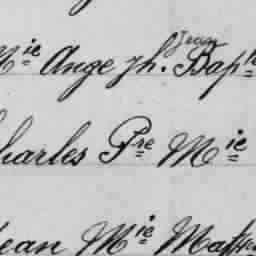 Mie Ange Jh. Jean Bapte
Charles Pre Mie
Jean Mie Math